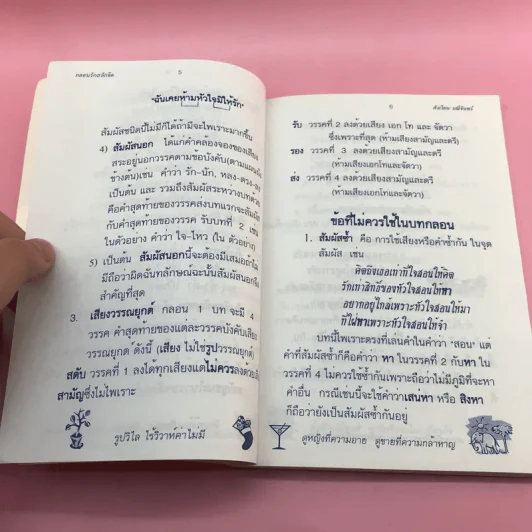 กลอนรักสลักจิต 5
"ฉันเคยห้ามหัวใจมิให้รัก"
สัมผัสชนิดนี้ไม่มีก็ได้ถ้ามีจะไพเราะมากขึ้น
4) สัมผัสนอก ได้แก่คำคล้องจองของเสียง
สระอยู่นอกวรรคตามข้อบังคับ(ตามแผนผัง
ข้างต้น)เช่น คำว่า รัก-นัก, หลง-ตรง-ลง
เป็นต้น และ รวมถึงสัมผัสระหว่างบทด้วย
คือคำสุดท้ายของวรรคส่งบทแรกจะสัมผัส
กับคำสุดท้ายของวรรค รับบทที่ 2 เช่น
ในตัวอย่าง คำว่า ใจ-ไหว (ใน ตัวอย่าง)
5) เป็นต้น สัมผัสนอกนี้จะต้องมีเสมอถ้าไม่
มีถือว่าผิดฉันทลักษณ์ฉะนั้นสัมผัสนอกจึง
สำคัญที่สุด
3. เสียงวรรณยุกต์ กลอน 1 บท จะมี 4
วรรค คำสุดท้ายของแต่ละวรรคบังคับเสียง
วรรณยุกต์ ดังนี้ (เสียง ไม่ใช่รูปวรรณยุกต์)
สดับ วรรคที่ 1 ลงได้ทุกเสียงแต่ไม่ควรลงด้วยเสียง
สามัญซึ่งไม่ไพเราะ
รูปวิไล ไร้วิวาห์ค่าไม่มี
6
รับ วรรคที่ 2 ลงด้วยเสียง เอก โท และ จัตวา
ซึ่งเพราะที่สุด (ห้ามเสียงสามัญและตรี)
รอง วรรคที่ 3 ลงด้วยเสียงสามัญและตรี
(ห้ามเสียงเอกโทและจัตวา)
ส่ง วรรคที่ 4 ลงด้วยเสียงสามัญและตรี
(ห้ามเสียงเอกโทและจัตวา)
ข้อที่ไม่ควรใช้ในบทกลอน
1. สัมผัสซ้ำ คือ การใช้เสียงหรือคำซ้ำกัน ในจุด
สัมผัส เช่น
คิดถึงเธอเท่าที่ใจสอนให้คิด
รักเท่าสิทธิ์ของหัวใจสอนให้หา
อยากอยู่ใกล้เพราะหัวใจสอนให้มา
ที่ใฝ่หาเพราะหัวใจสอนให้จำ
บทนี้ไพเราะตรงที่เล่นคำในคำว่า "สอน" แต่
คำที่สัมผัสซ้ำก็คือคำว่า หา ในวรรคที่ 2 กับหา ใน
วรรคที่ 4 ไม่ควรใช้ซ้ำกันเพราะถือว่าไม่มีภูมิที่จะหา
คำอื่น กรณีเช่นนี้จะใช้คำว่าเสน่หา หรือ สิงหา
ก็ถือว่ายังเป็นสัมผัสซ้ำกันอยู่
ดูหญิงที่ความอาย ดูชายที่ความกล้าหาญ